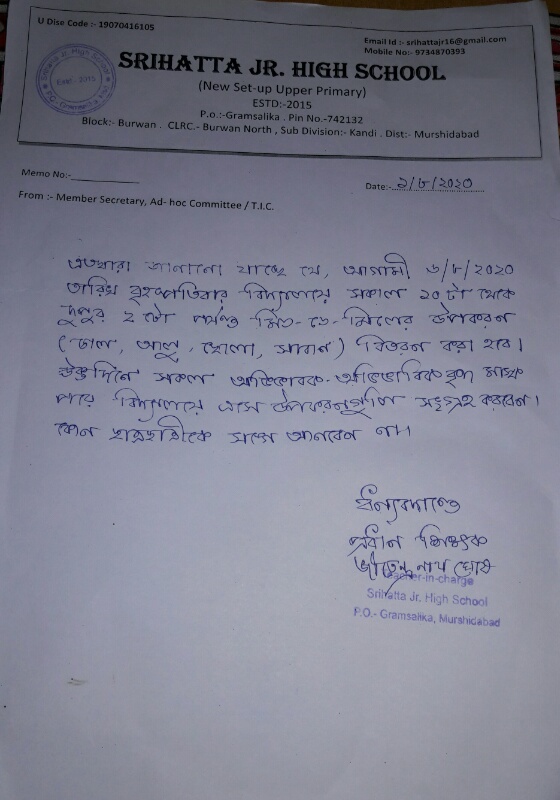 U Dise Code :- 19070416105
Email Id :- srihattajr16@gmail.com
Mobile No:- 9734870393
SRIHATTA JR. HIGH SCHOOL
(New Set-up Upper Primary)
ESTD:-2015
P.o.:-Gramsalika . Pin No.-742132
Block:- Burwan . CLRC.- Burwan North , Sub Division:- Kandi . Dist:- Murshidabad
Srihatta Jr. High School
Estd - 2015
P.O.- Gramsalika
Memo No:-
Date:- ৯/৮/২০২০
From :- Member Secretary, Ad- hoc Committee / T.I.C.
এতদ্বারা জানানো যাচ্ছে যে, আগামী ৬/৮/২০২০
তারিখ বৃহস্পতিবার বিদ্যালয়ে সকাল ১০টা থেকে
দুপুর ২ টো পর্যন্ত মিড-ডে-মিলের উপকরন
(চাল, আলু, ছোলা, সাবান) বিতরন করা হবে।
উক্ত দিনে সকল অভিভাবক-অভিভাবিকবৃন্দ মাস্ক
পরে বিদ্যালয়ে এসে উপকরনগুলি সংগ্রহ করবেন।
কোন ছাত্রছাত্রীকে সঙ্গে আনবেন না।
ধন্যবাদান্তে
প্রধান শিক্ষক
নাথ ঘোষ
Teacher-in-charge
Srihatta Jr. High School
P.O.- Gramsalika, Murshidabad